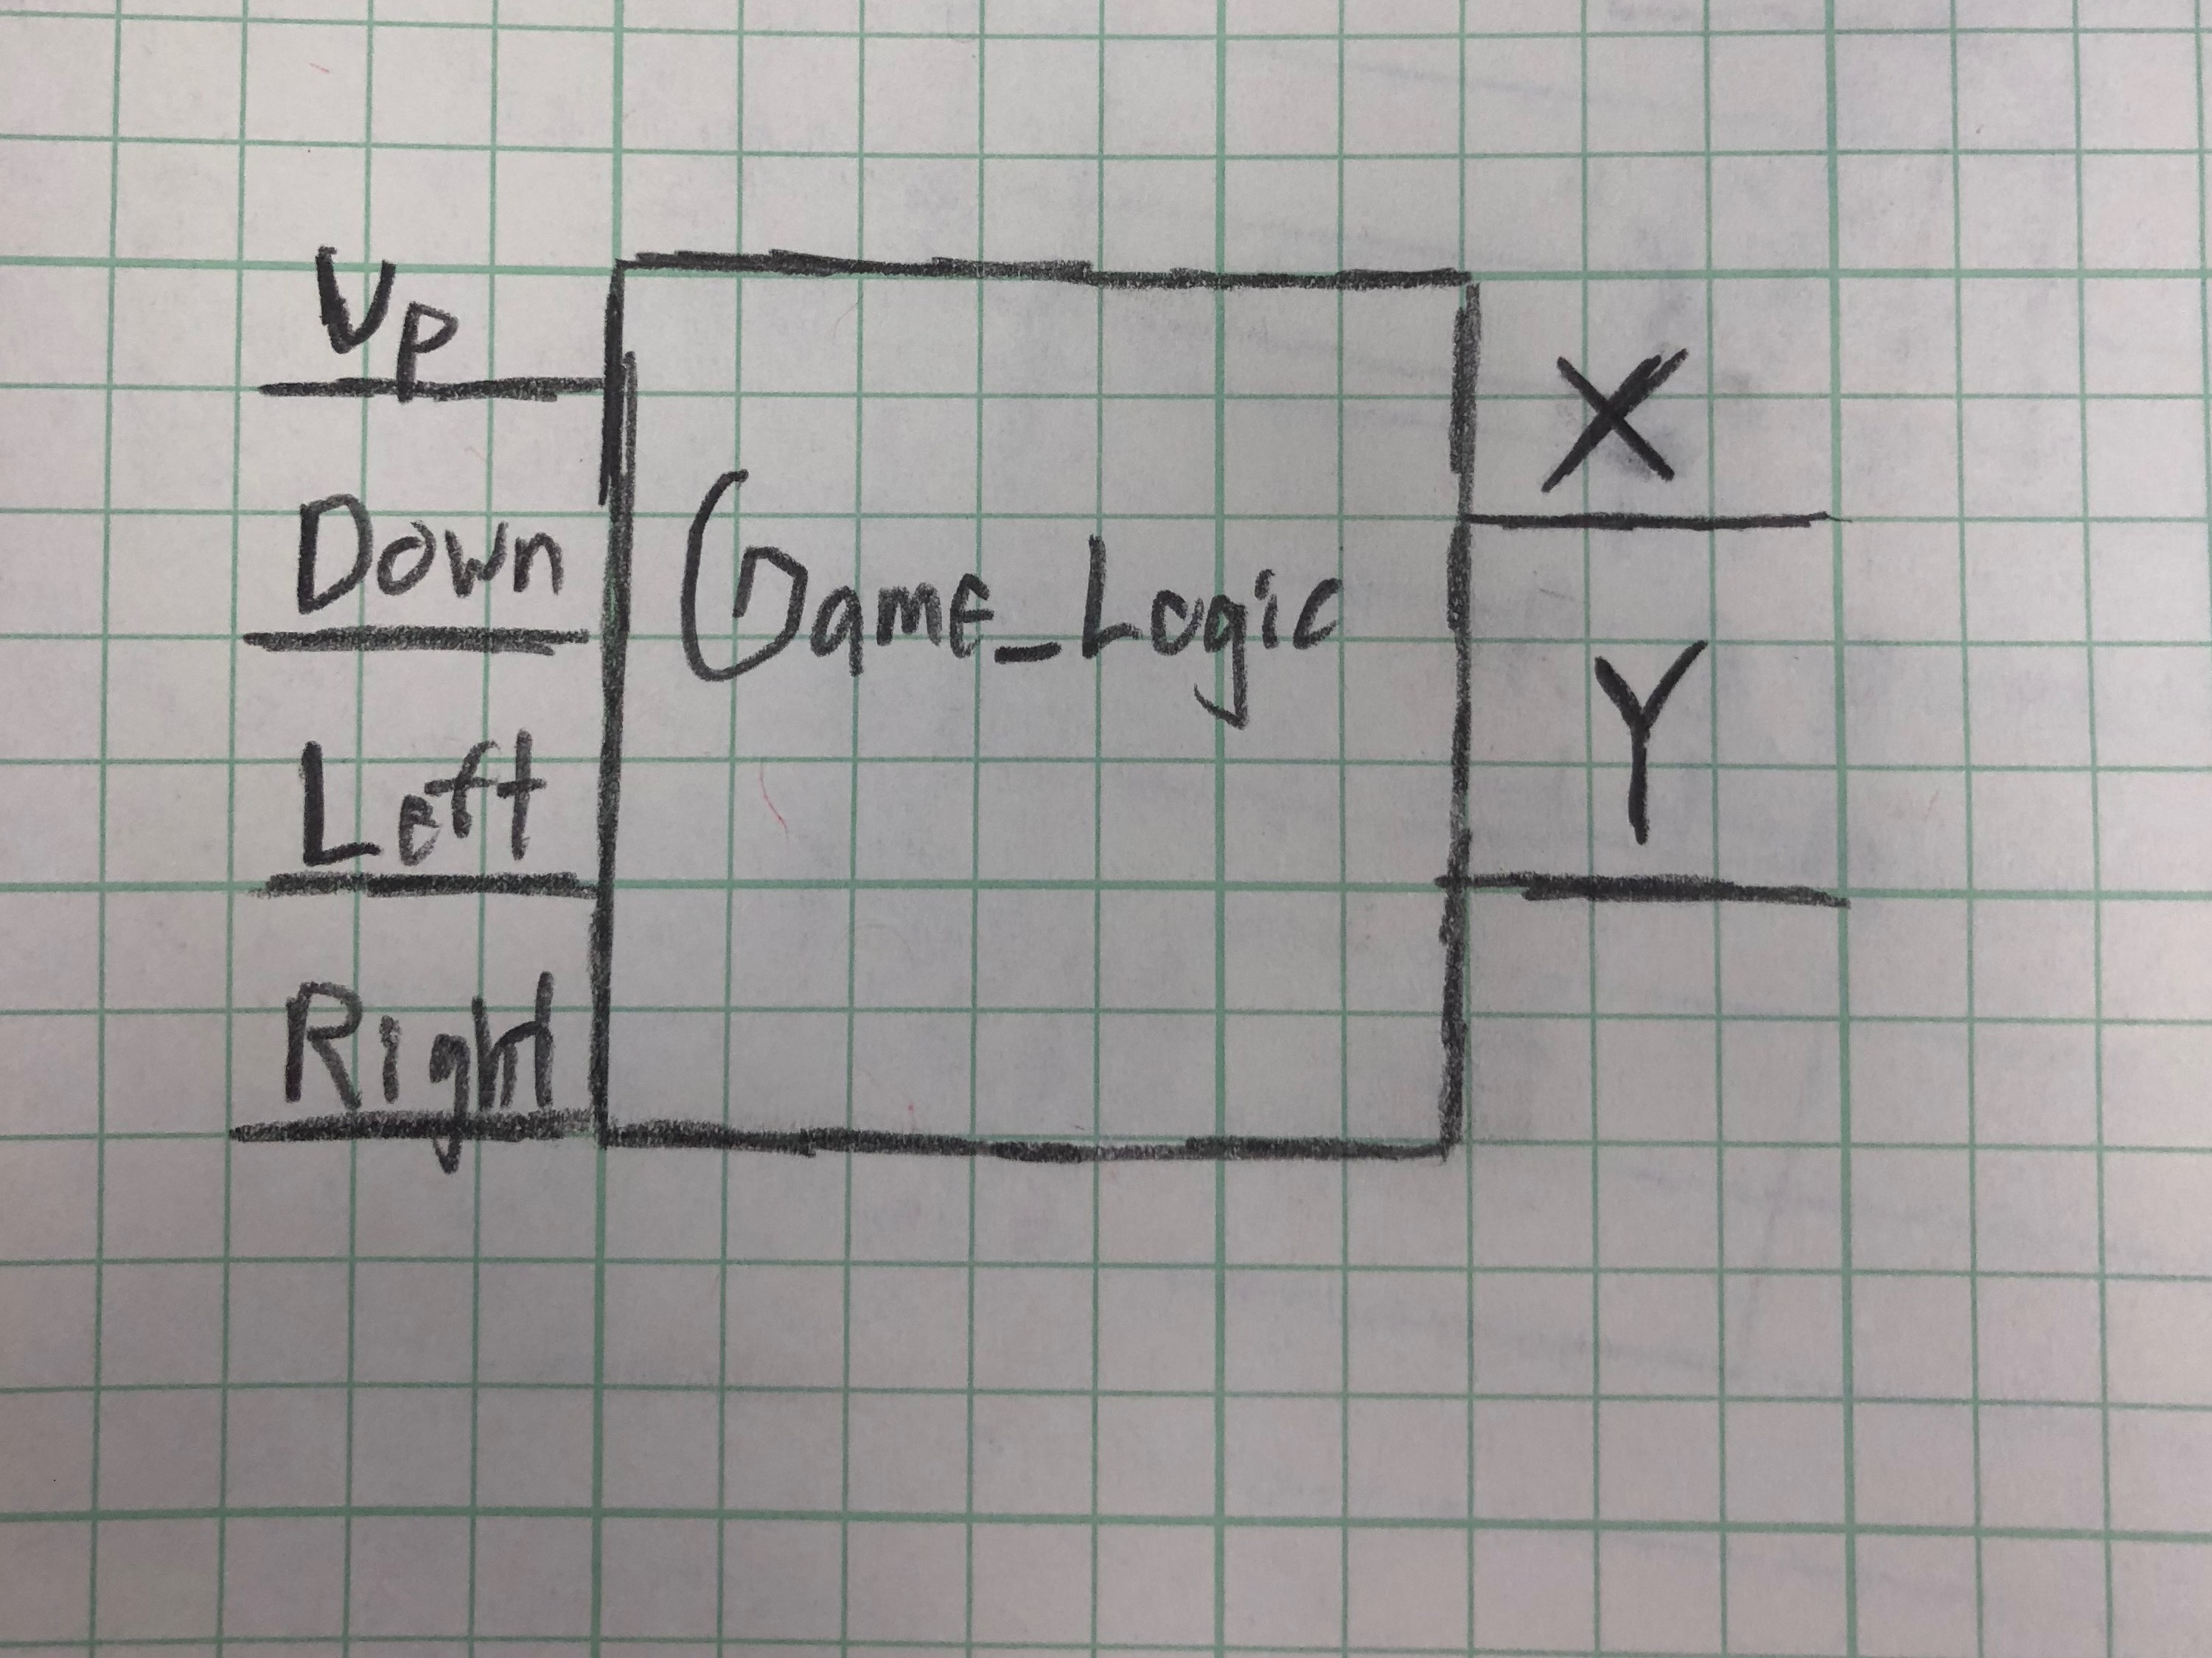 Up
Down
Left
Right
Game_Logic
X
Y